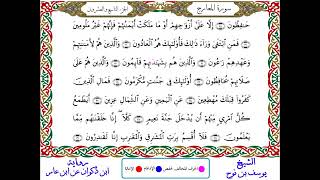 سورة المعارج
الجزء التاسع والعشرون
حَٰفِظُونَ إِلَّا عَلَىٰٓ أَزْوَٰجِهِمْ أَوْ مَا مَلَكَتْ أَيْمَٰنُهُمْ فَإِنَّهُمْ غَيْرُ مَلُومِينَ
فَمَنِ ٱبْتَغَىٰ وَرَآءَ ذَٰلِكَ فَأُوْلَٰٓئِكَ هُمُ ٱلْعَادُونَ وَٱلَّذِينَ هُمْ لِأَمَٰنَٰتِهِمْ
وَعَهْدِهِمْ رَٰعُونَ وَٱلَّذِينَ هُم بِشَهَٰدَتِهِمْ قَآئِمُونَ وَٱلَّذِينَ هُمْ عَلَىٰ
صَلَاتِهِمْ يُحَافِظُونَ أُوْلَٰٓئِكَ فِي جَنَّٰتٍ مُّكْرَمُونَ فَمَالِ ٱلَّذِينَ
كَفَرُواْ قِبَلَكَ مُهْطِعِينَ عَنِ ٱلْيَمِينِ وَعَنِ ٱلشِّمَالِ عِزِينَ أَيَطْمَعُ
كُلُّ ٱمْرِيٕٖ مِّنْهُمْ أَن يُدْخَلَ جَنَّةَ نَعِيمٍ كَلَّآ إِنَّا خَلَقْنَٰهُم مِّمَّا
يَعْلَمُونَ فَلَآ أُقْسِمُ بِرَبِّ ٱلْمَشَٰرِقِ وَٱلْمَغَٰرِبِ إِنَّا لَقَٰدِرُونَ
الشيخ
يوسف بن نوح
الإدغام
الإمالة
رواية
ابن ذكوان عن ابن عامر